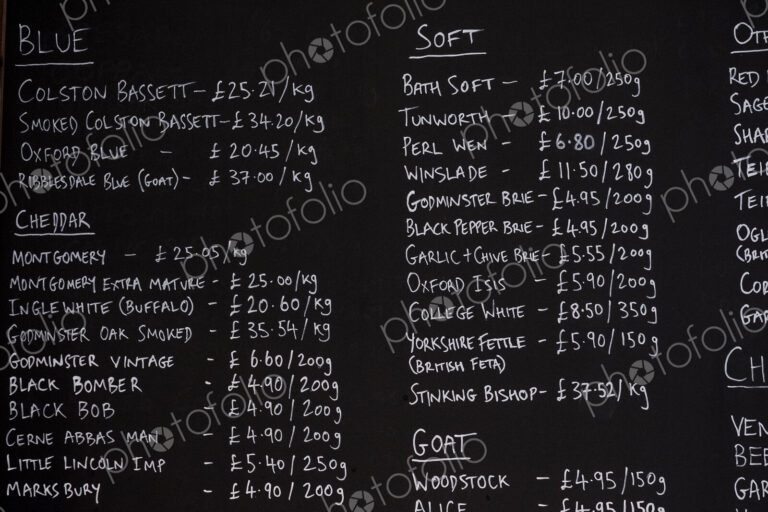 BLUE
COLSTON BASSETT - £25.21/kg
SMOKED COLSTON BASSETT - £34.20/kg
OXFORD BLUE - £20.45/kg
RIBBLESDALE BLUE (GOAT) - £37.00/kg
CHEDDAR
MONTGOMERY - £25.05/kg
MONTGOMERY EXTRA MATURE - £25.00/kg
INGLEWHITE (BUFFALO) - £20.60/kg
GODMINSTER OAK SMOKED - £35.54/kg
GODMINSTER VINTAGE - £6.60/200g
BLACK BOMBER - £4.90/200g
BLACK BOB - £4.90/200g
CERNE ABBAS MAN - £4.90/200g
LITTLE LINCOLN IMP - £5.40/250g
MARKSBURY - £4.90/200g
SOFT
BATH SOFT - £7.00/250g
TUNWORTH - £10.00/250g
PERL WEN - £6.80/250g
WINSLADE - £11.50/280g
GODMINSTER BRIE - £4.95/200g
BLACK PEPPER BRIE - £4.95/200g
GARLIC + CHIVE BRIE - £5.55/200g
OXFORD ISIS - £5.90/200g
COLLEGE WHITE - £8.50/350g
YORKSHIRE FETTLE - £5.90/150g
(BRITISH FETA)
STINKING BISHOP - £37.52/kg
GOAT
WOODSTOCK - £4.95/150g
ALICE - £4.95/150g
RED
SAGE
SHAR
TEIF
OGL
(BRIT
COR
GAR
CH
VEN
BEE
GAR
photofolio